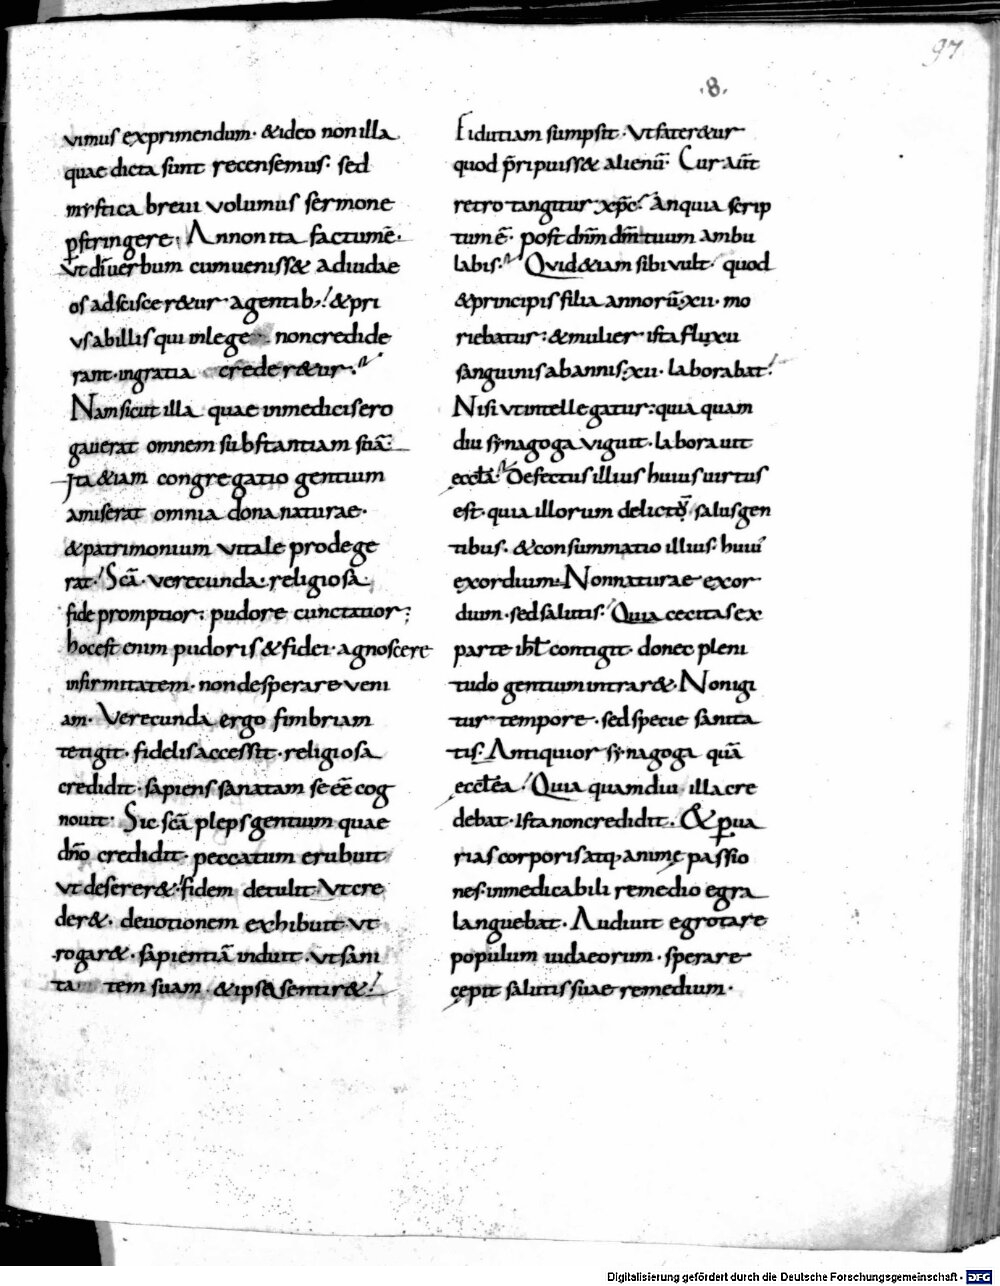 97
·8·
vimus exprimendum· &ideo non illa
quae dicta sunt recensemus· sed
mystica brevi volumus sermone
p̲stringere· An non ita factum ē·
Vt dī verbum cum venisset& a diudae
os adsciscer&ur agentib;· &pri
vs ab illis qui in lege non credide
rant· in gratia creder&ur·
Nam sicut illa quae in medicis ero
gaverat omnem substantiam suā·
Ita &iam congregatio gentium
amiserat omnia dona naturae·
& patrimonium vitale prodege
rat· Scā· verecunda· religiosa
fide promptior; pudore cunctatior;
hoc est enim pudoris & fidei· agnoscere
infirmitatem· non desperare veni
am· Verecunda ergo fimbriam
tetigit· fidelis accessit· religiosa
credidit· sapiens sanatam se eē cog
novit· Sic scā pleps gentium quae
dn̄o credidit· peccatum erubuit
vt deserer&· fidem detulit· Vt cre
der&· devotionem exhibuit· vt
rogar&· sapientiā induit· vt sani
ta tem suam· & ipsa sentir&·
Fidutiam sumpsit· Vt fater&ur
quod p̄ripuiss& alienū· Cur aūt
retro tangitur xp̄c· An quia scrip
tum ē· post dn̄m dm̄ tuum ambu
labis· Quid &iam sibi vult· quod
& principis filia annorū·xii· mo
riebatur· & mulier ista fluxu
sanguinis ab annis·xii· laborabat·
Nisi vt intellegatur· quia quam
diu synagoga viguit· laboravit
eccl̄a· Defectus illius huius uirtus
est· quia illorum delicto salus gen
tibus· & consummatio illius· huiꝰ
exordium· Non naturae exor
dium· sed salutis· Quia cecitas ex
parte ihl̄ contigit· donec pleni
tudo gentium intrar&· Non igi
tur tempore· sed specie sanita
tis· Antiquior synagoga quā
eccl̄ea· Quia quamdiu illa cre
debat· ista non credidit· & p̲ va
rias corporis atq; animę passio
nes· inmedicabili remedio egra
languebat· Audivit egrotare
populum iudaeorum· sperare
cępit salutis suae remedium·
Digitalisierung gefördert durch die Deutsche Forschungsgemeinschaft - DFG